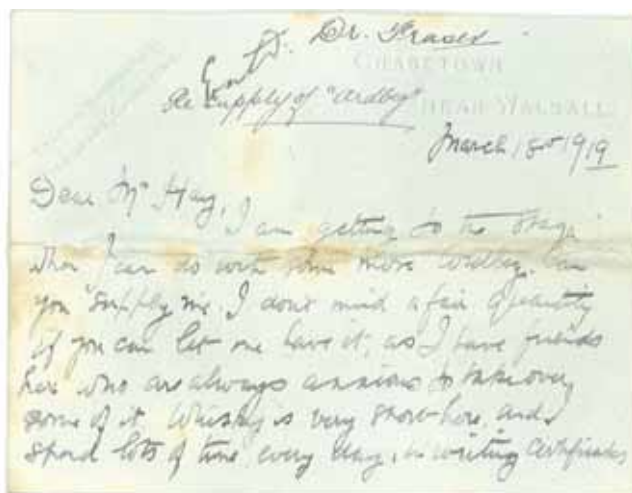 Dr. Fraser
CHASETOWN
Re Supply of "Ardbeg"
NEAR WALSALL
March 18th 1919
Dear Mr Hay,
I am getting to the stage
when I can do with some more Ardbeg. Can
you supply me. I don't mind a fair quantity
if you can let me have it, as I have friends
here who are always anxious to take over
some of it Whisky is very short here, and
spend lots of time every day, in writing Certificates